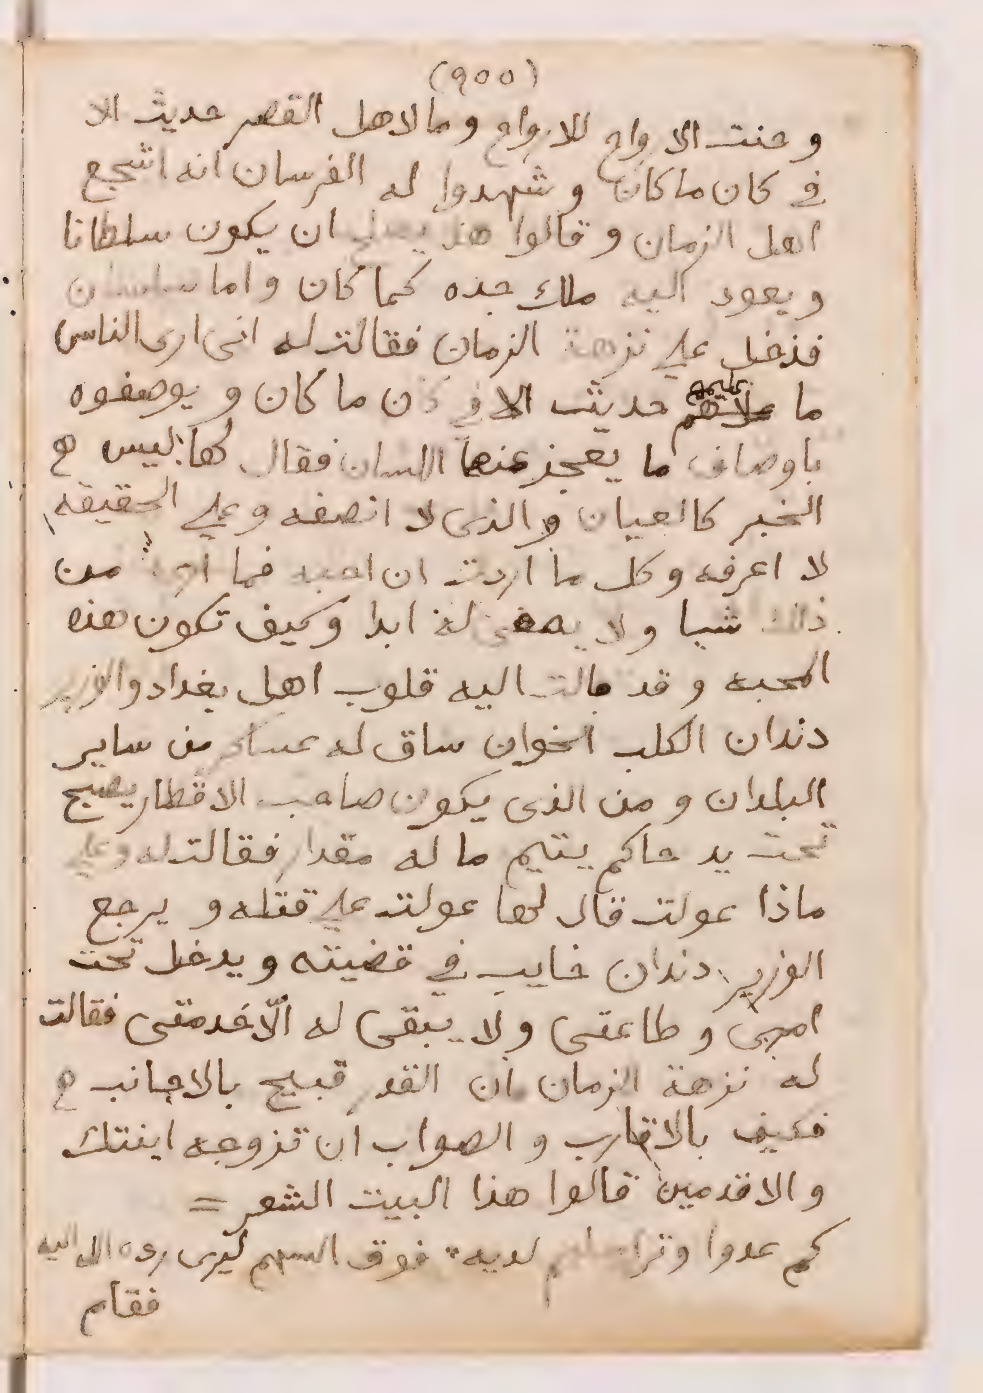 (٩٥٥)
وحنت الارواح للارواح ومالاهل القصر حديث الا
في كان ماكان وشهدوا له الفرسان انه اشجع
اهل الزمان وقالوا هذا يصلح ان يكون سلطانا
ويعود اليه ملك جده كما كان واما ساسان
فدخل علي نزهة الزمان فقالت له انى ارى الناس
ما عليهم حديث الا في كان ما كان ويوصفوه
باوصاف ما يعجز عنها اللسان فقال لها ليس
الخبر كالعيان والذى لا انصفه وعلي الحقيقه
لا اعرفه وكل ما اردت ان احبه فما من
ذلك شيا ولا يصفى له ابدا وكيف تكون هذه
المحبه وقد مالت اليه قلوب اهل بغداد والوزير
دندان الكلب الخوان ساق له عساكر من ساير
البلدان ومن الذى يكون صاحب الاقطار يصبح
تحت يد حاكم يتيم ما له مقدار فقالت له وعلي
ماذا عولت قال لها عولت علي قتله ويرجع
الوزير دندان خايب في قضيته ويدخل تحت
امرى وطاعتى ولا يبقى له الّا خدمتى فقالت
له نزهة الزمان ان القدر قبيح بالاجانب
فكيف بالاقارب والصواب ان تزوجه ابنتك
والاقدمين قالوا هذا البيت الشعر =
كم عدوا لديه فوق السهم ليرى رده الله اليه
فقام